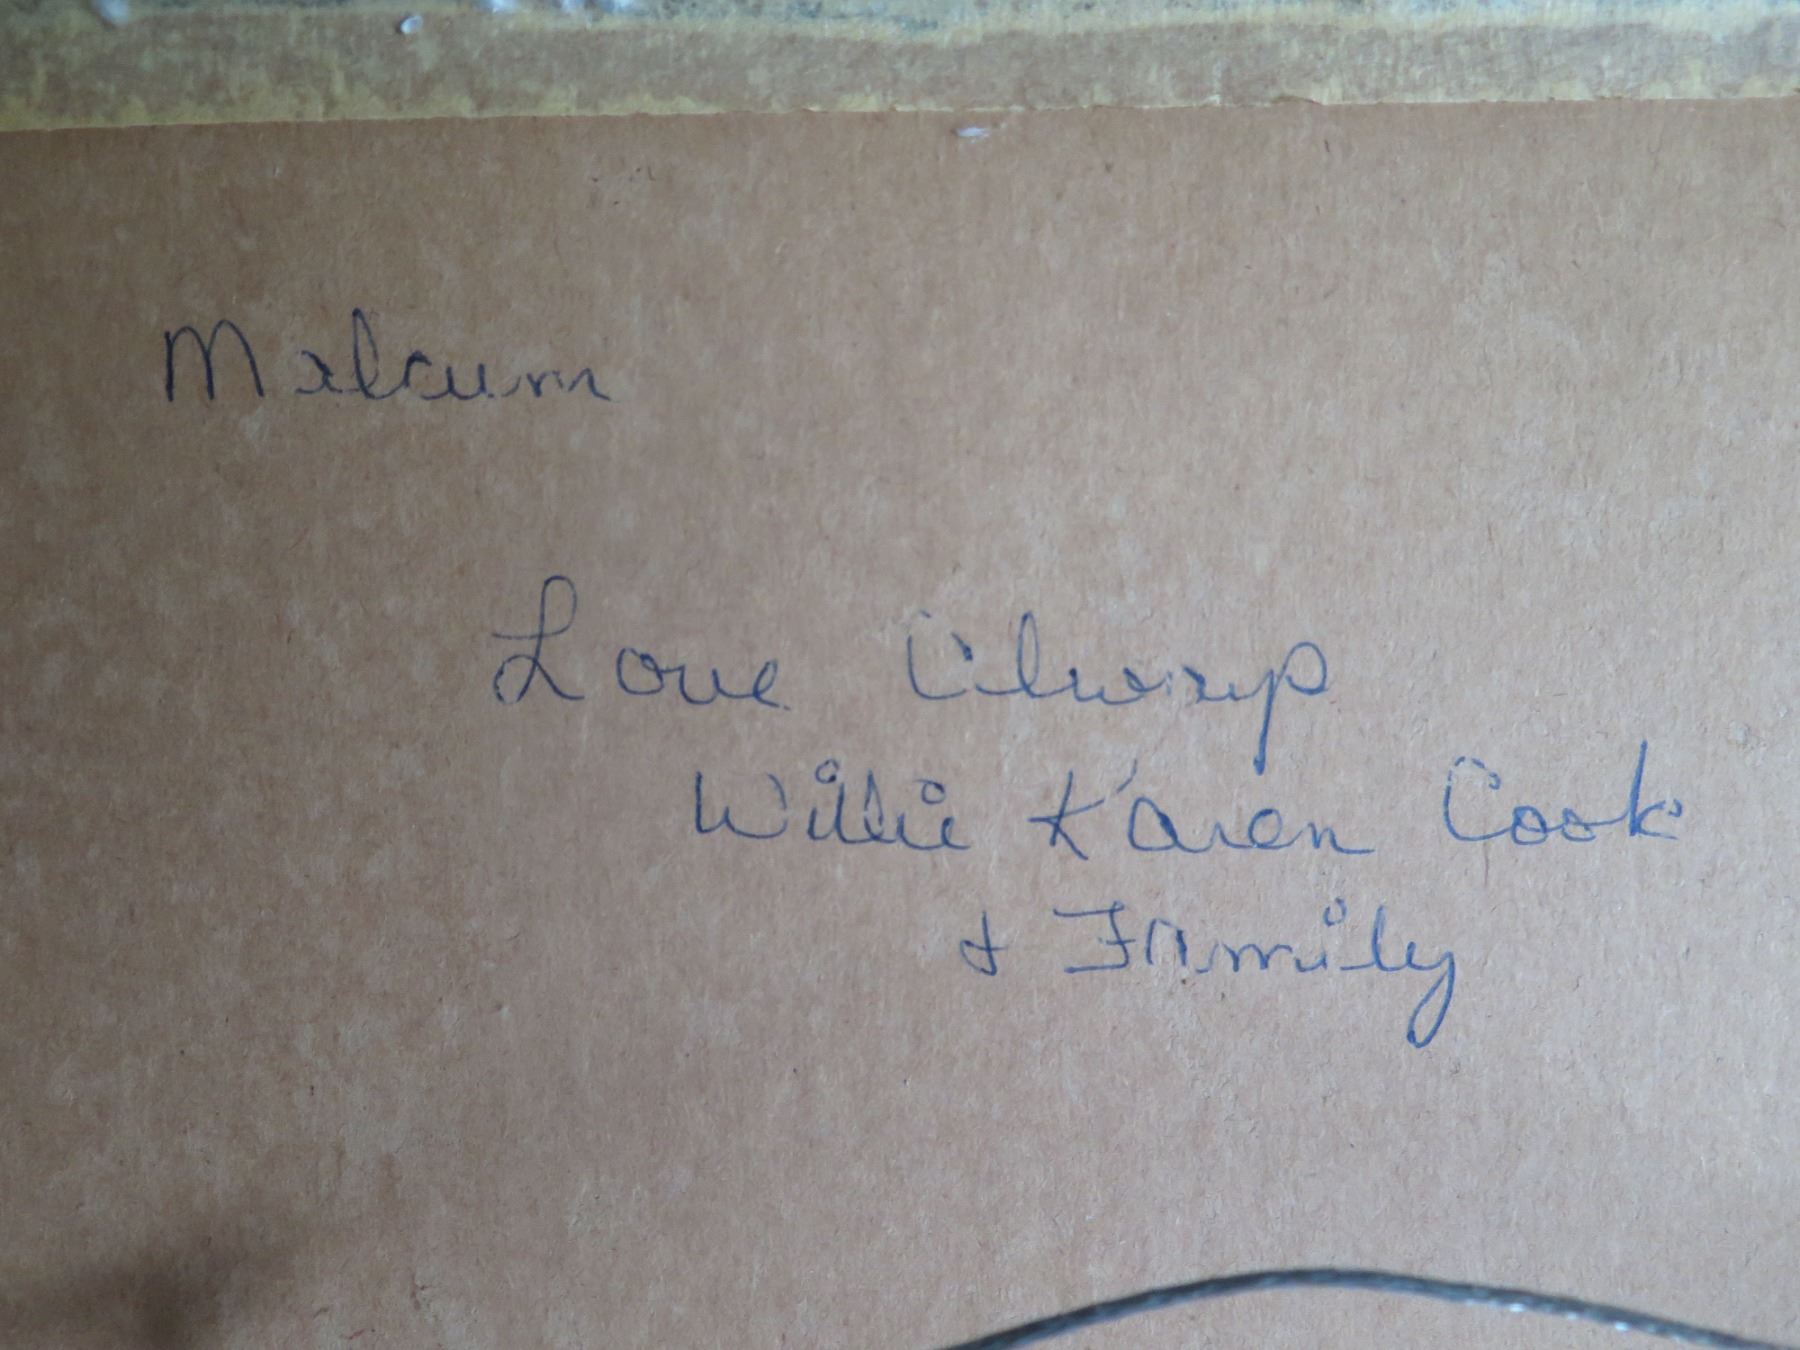 Malcum
Love Always
Willie Karen Cook
& Family